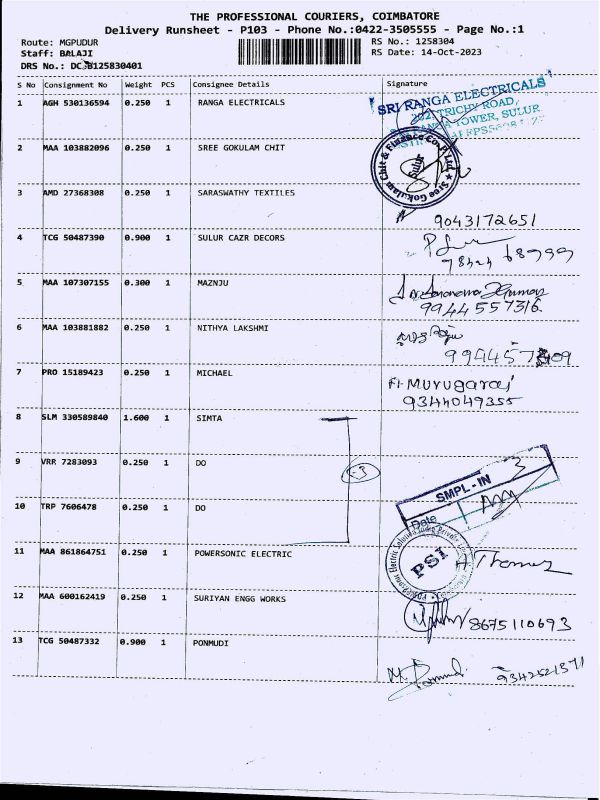 THE PROFESSIONAL COURIERS, COIMBATORE
Delivery Runsheet - P103 - Phone No.:0422-3505555 - Page No.:1
Route: MGPUDUR
RS No.: 1258304
Staff: BALAJI
RS Date: 14-Oct-2023
DRS No.: DC
B125830401
S No Consignment No Weight PCS Consignee Details Signature
1 AGH 530136594 0.250 1 RANGA ELECTRICALS
SRI RANGA ELECTRICALS
TRICHY ROAD,
TOWER, SULUR
2 MAA 103882096 0.250 1 SREE GOKULAM CHIT
Sree Gokulam Chit & Finance Co. P. Ltd.
Sulur
3 AMD 27368308 0.250 1 SARASWATHY TEXTILES
9043172651
4 TCG 50487390 0.900 1 SULUR CAZR DECORS
5 MAA 107307155 0.300 1 MAZNJU
9944557316
6 MAA 103881882 0.250 1 NITHYA LAKSHMI
7 PRO 15189423 0.250 1 MICHAEL
Murugaraj
9344049355
8 SLM 330589840 1.600 1 SIMTA
9 VRR 7283093 0.250 1 DO
-3
3
SMPL-IN
10 TRP 7606478 0.250 1 DO
Date
11 MAA 861864751 0.250 1 POWERSONIC ELECTRIC
PSI
Thomas
12 MAA 600162419 0.250 1 SURIYAN ENGG WORKS
8675110693
13 TCG 50487332 0.900 1 PONMUDI
9342521371